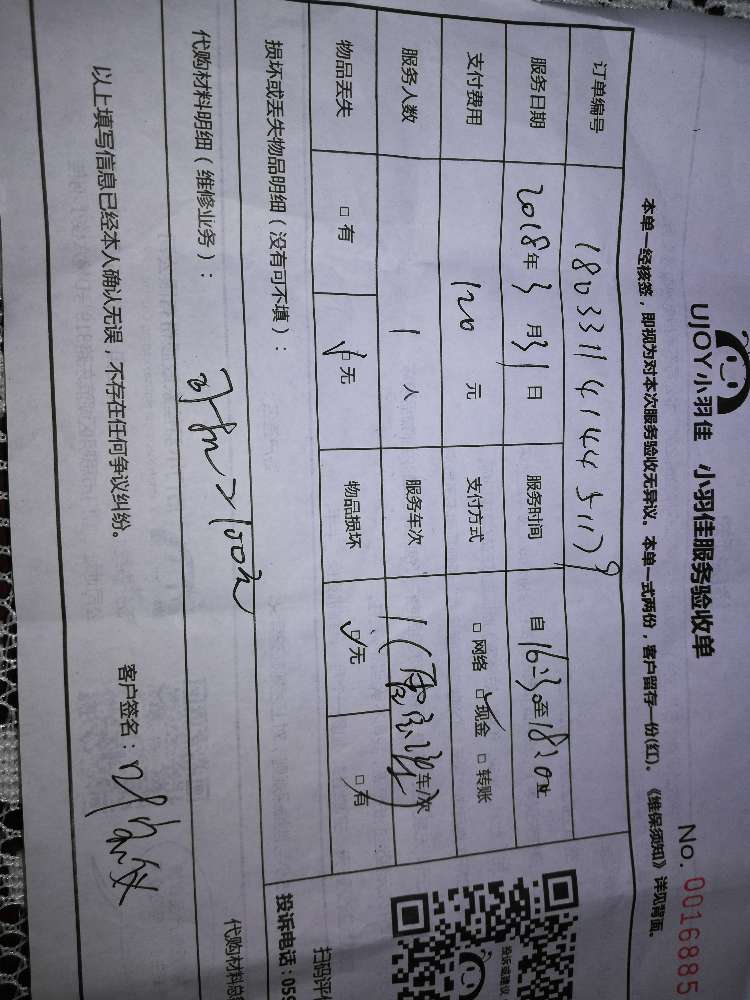 UJOY小羽佳 小羽佳服务验收单
No. 0016885
本单一经核签，即视为对本次服务验收无异议。本单一式两份，客户留存一份(红)。《维保须知》详见背面。
订单编号
服务日期 2018年3月31日 服务时间 自16:30至18:20止
支付费用 120元 支付方式 □网络 ☑现金 □转账
服务人数 1人 服务车次 1 车/次
物品丢失 □有 ☑无 物品损坏 ☑无 □有
损坏或丢失物品明细（没有可不填）：
代购材料明细（维修业务）：
以上填写信息已经本人确认无误，不存在任何争议纠纷。
客户签名：
投诉或建议
扫码评
投诉电话：059
代购材料总